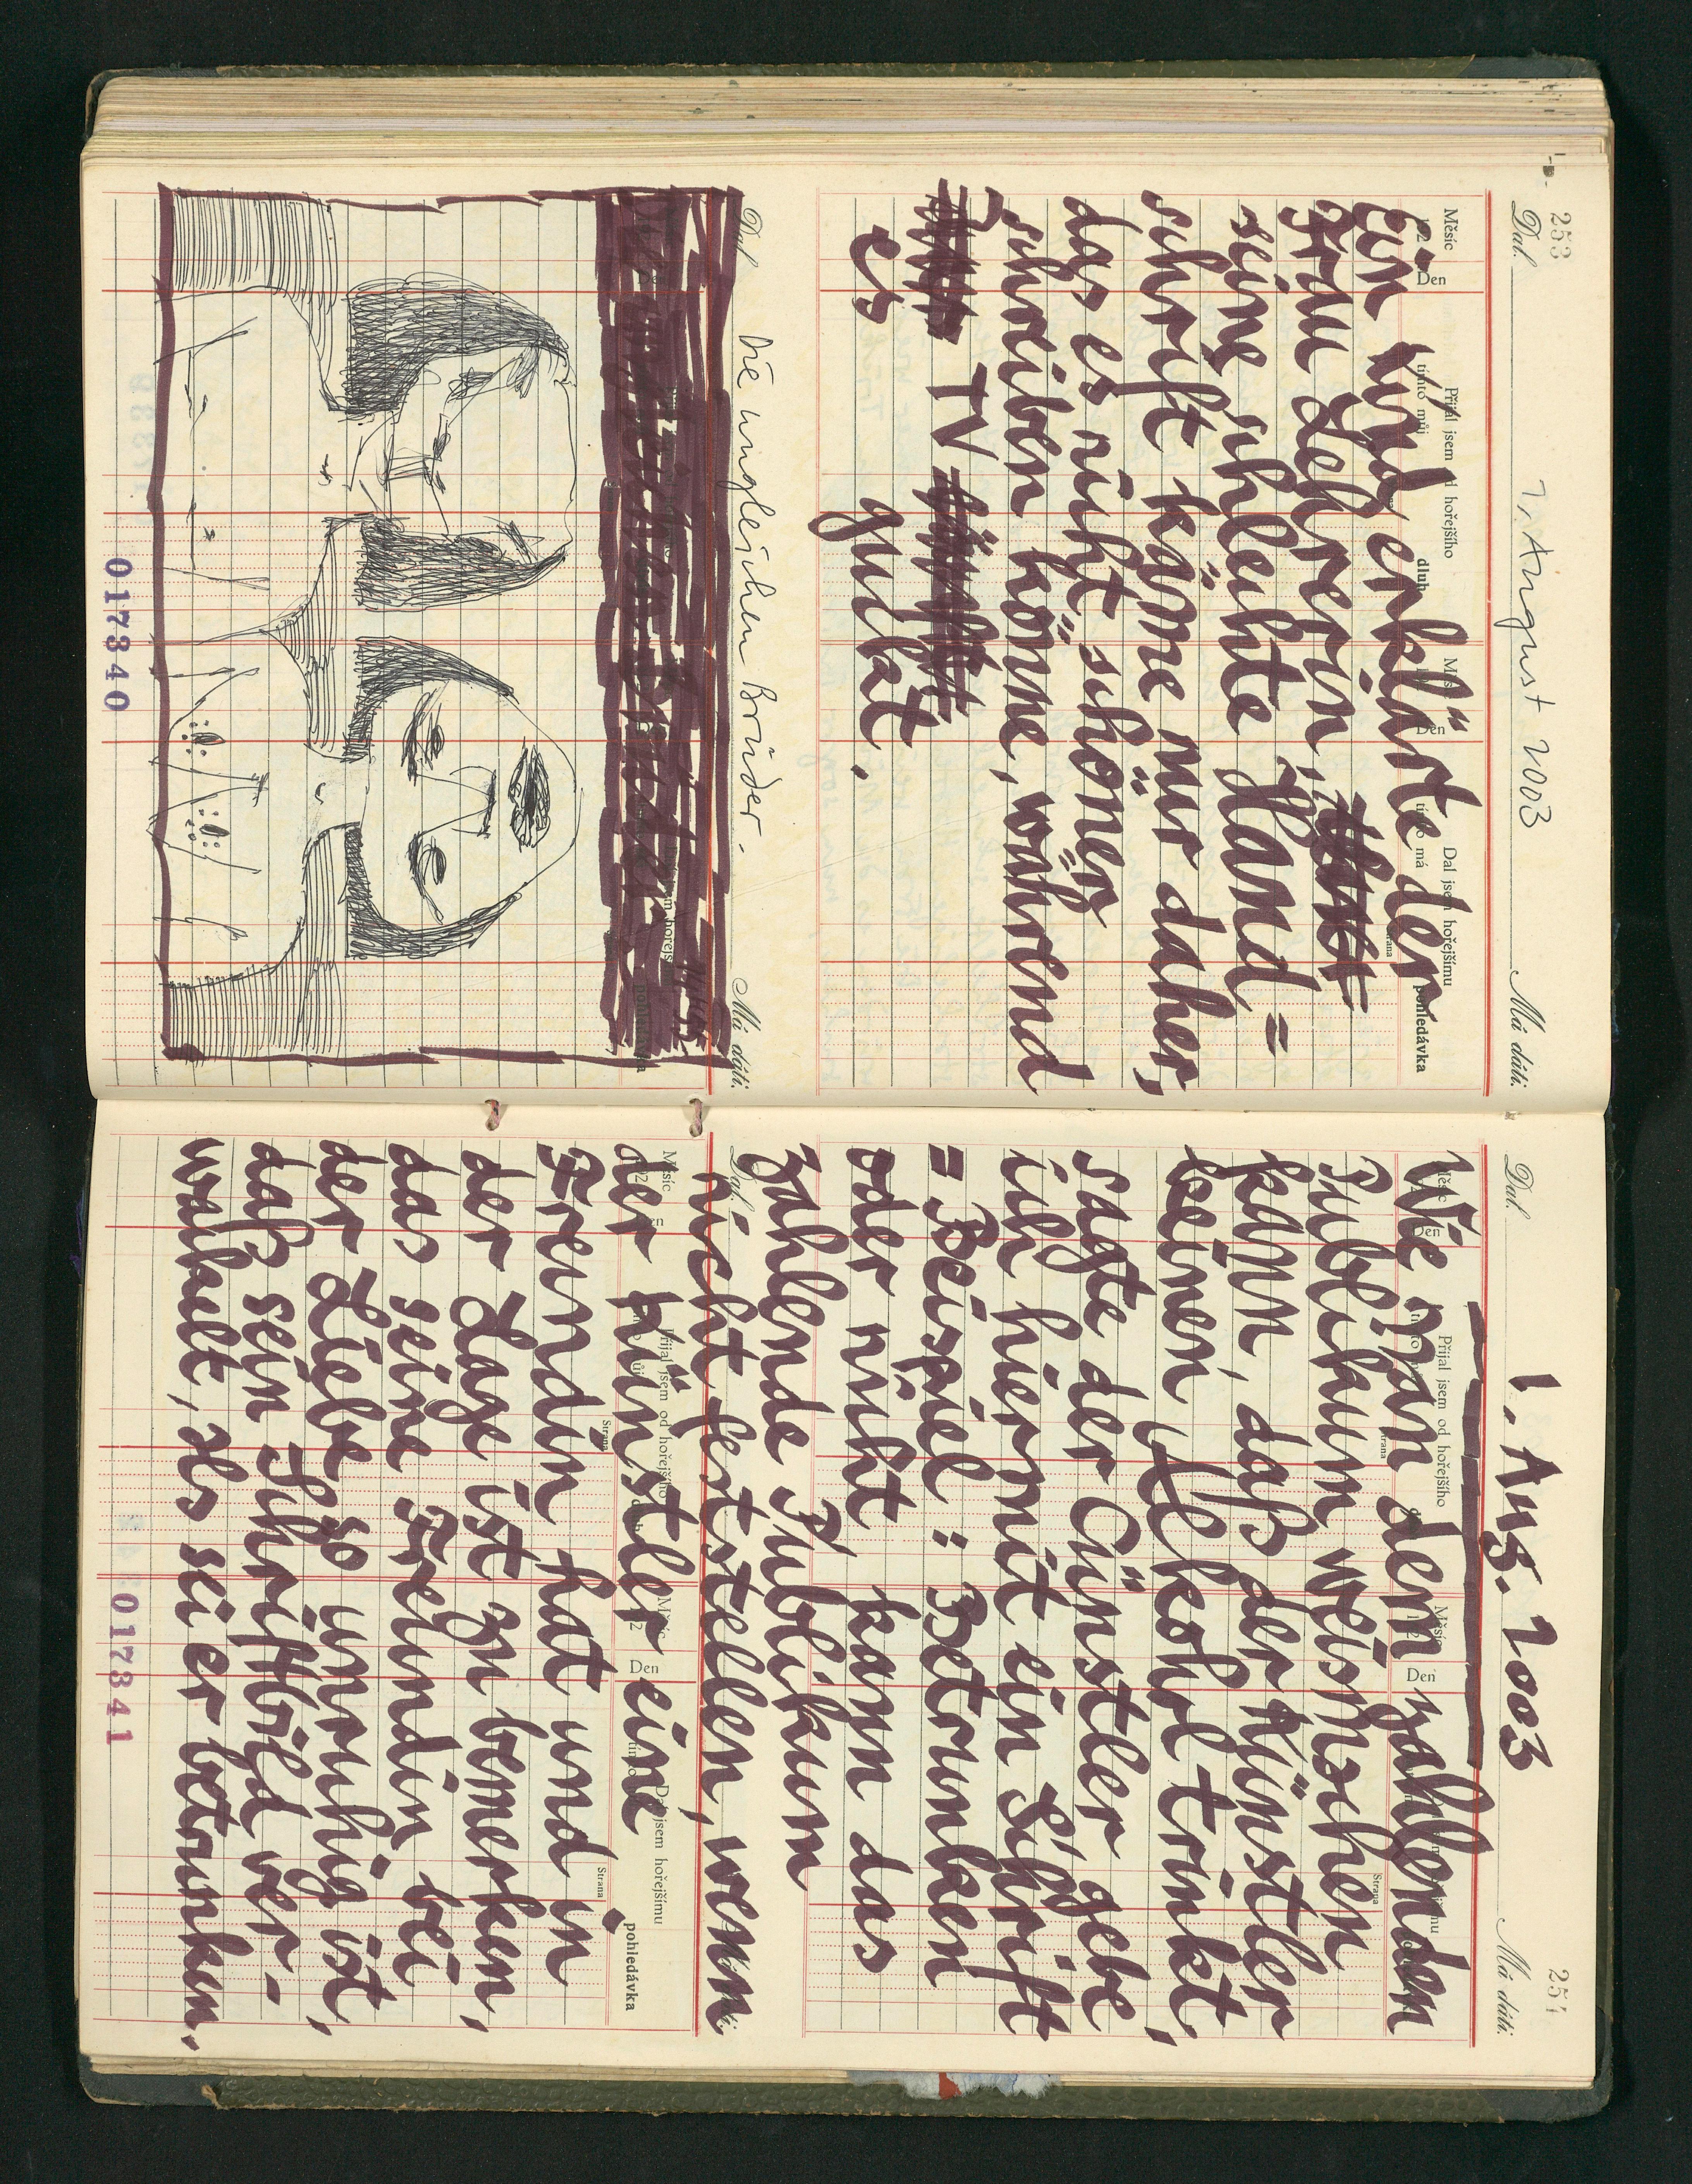 253
Dal.
1. August 2003
Má dáti.
Měsíc
Den
Přijal jsem od hořejšího
tímto můj
dluh
Dal jsem hořejšímu
tímto má
pohledávka
Ein Kind erklärte der
Frau Lehrerin,
seine schlechte Hand=
schrift käme nur daher,
das es nicht schöner
schreiben könne, während
TV
es guckt.
Dal
Má dáti.
Die ungleichen Brüder.
017340
254
Dal.
1. Aug. 2003
Má dáti.
Měsíc
Den
Přijal jsem od hořejšího
Strana
Wie man dem zahlenden
Publikum weismachen
kann, daß der Künstler
keinen Alkohol trinkt,
sagte der Künstler gebe
ich hiermit ein Schrift
=Beispiel: Betrunken
oder nicht kann das
zahlende Publikum
nicht feststellen, wenn
der Künstler eine
Freundin hat und in
der Lage ist zu bemerken,
das seine Freundin bei
der Liebe so unruhig ist,
daß sein Schriftbild ver-
wackelt, als sei er betrunken.
Měsíc
Den
Přijal jsem od hořejšího
Strana
Dal jsem hořejšímu
Strana
pohledávka
017341